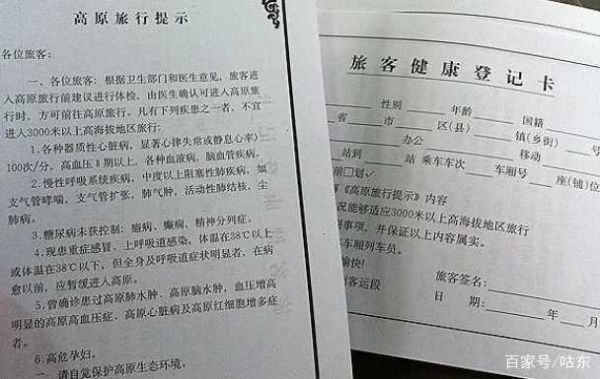 高原旅行提示
各位旅客：
一、各位旅客：根据卫生部门和医生意见，旅客进
入高原旅行前建议进行体检，由医生确认可进入高原旅
行时，方可前往高原旅行。凡有下列疾患之一者，不宜
进入3000米以上高海拔地区旅行：
1.各种器质性心脏病，显著心律失常或静息心率＞
100次/分，高血压Ⅱ期以上，各种血液病，脑血管疾病。
2.慢性呼吸系统疾病，中度以上阻塞性肺疾病，如
支气管哮喘，支气管扩张，肺气肿，活动性肺结核，尘
肺病。
3.糖尿病未获控制：癔病、癫痫、精神分裂症。
4.现患重症感冒、上呼吸道感染，体温在38℃以上
或体温在38℃以下，但全身及呼吸道症状明显者，在病
愈以前，应暂缓进入高原。
5.曾确诊患过高原肺水肿、高原脑水肿，血压增高
明显的高原高血压症、高原心脏病及高原红细胞增多症
者。
6.高危孕妇。
请自觉保护高原生态环境。
旅客健康登记卡
性别 年龄 国籍
省 市 区(县) 镇(乡街) 号
办公 移动
站到 站 乘车车次 车厢号 座(铺)位
前□划✓
《高原旅行提示》内容
况能够适应3000米以上高海拔地区旅行
事项，并保证以上内容属实。
车厢列车员。
愉快！
客运段
旅客签名：
日 期： 年 月
百家号/咕东